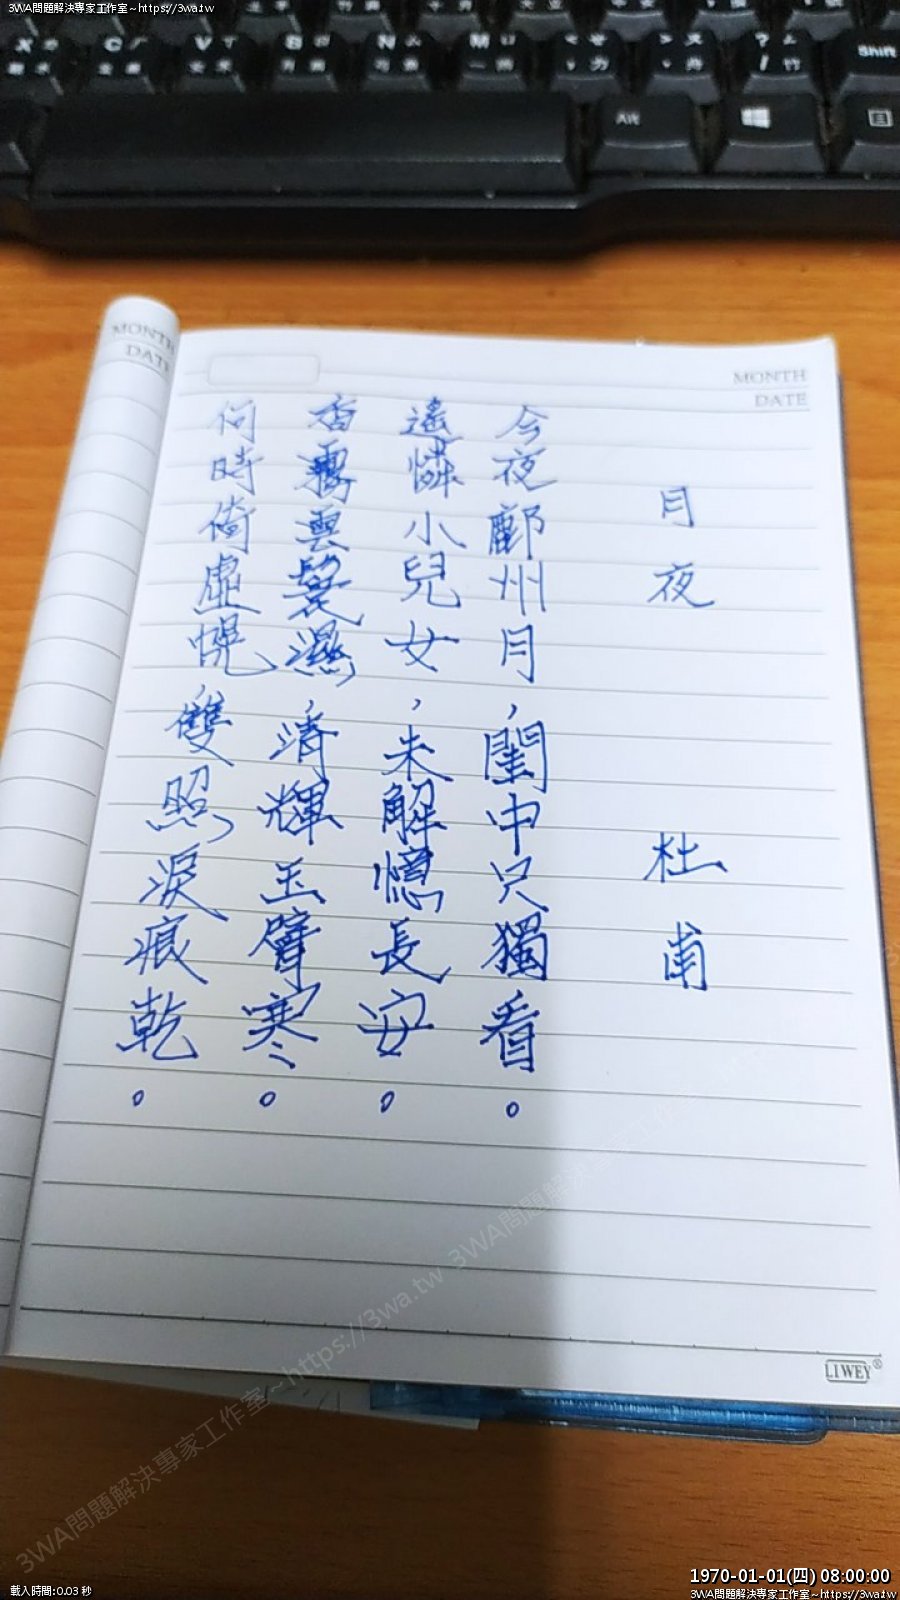 3WA問題解決專家工作室~https://3wa.tw
X
C
V
B
N
M
Shift
Alt
MONTH
DATE
MONTH
DATE
月夜 杜甫
今夜鄜州月,閨中只獨看。
遙憐小兒女,未解憶長安。
香霧雲鬟濕,清輝玉臂寒。
何時倚虛幌,雙照淚痕乾。
LIWEY®
3WA問題解決專家工作室~https://3wa.tw
3WA問題解決專家工作室~https://3wa.tw
載入時間:0.03 秒
1970-01-01(四) 08:00:00
3WA問題解決專家工作室~https://3wa.tw